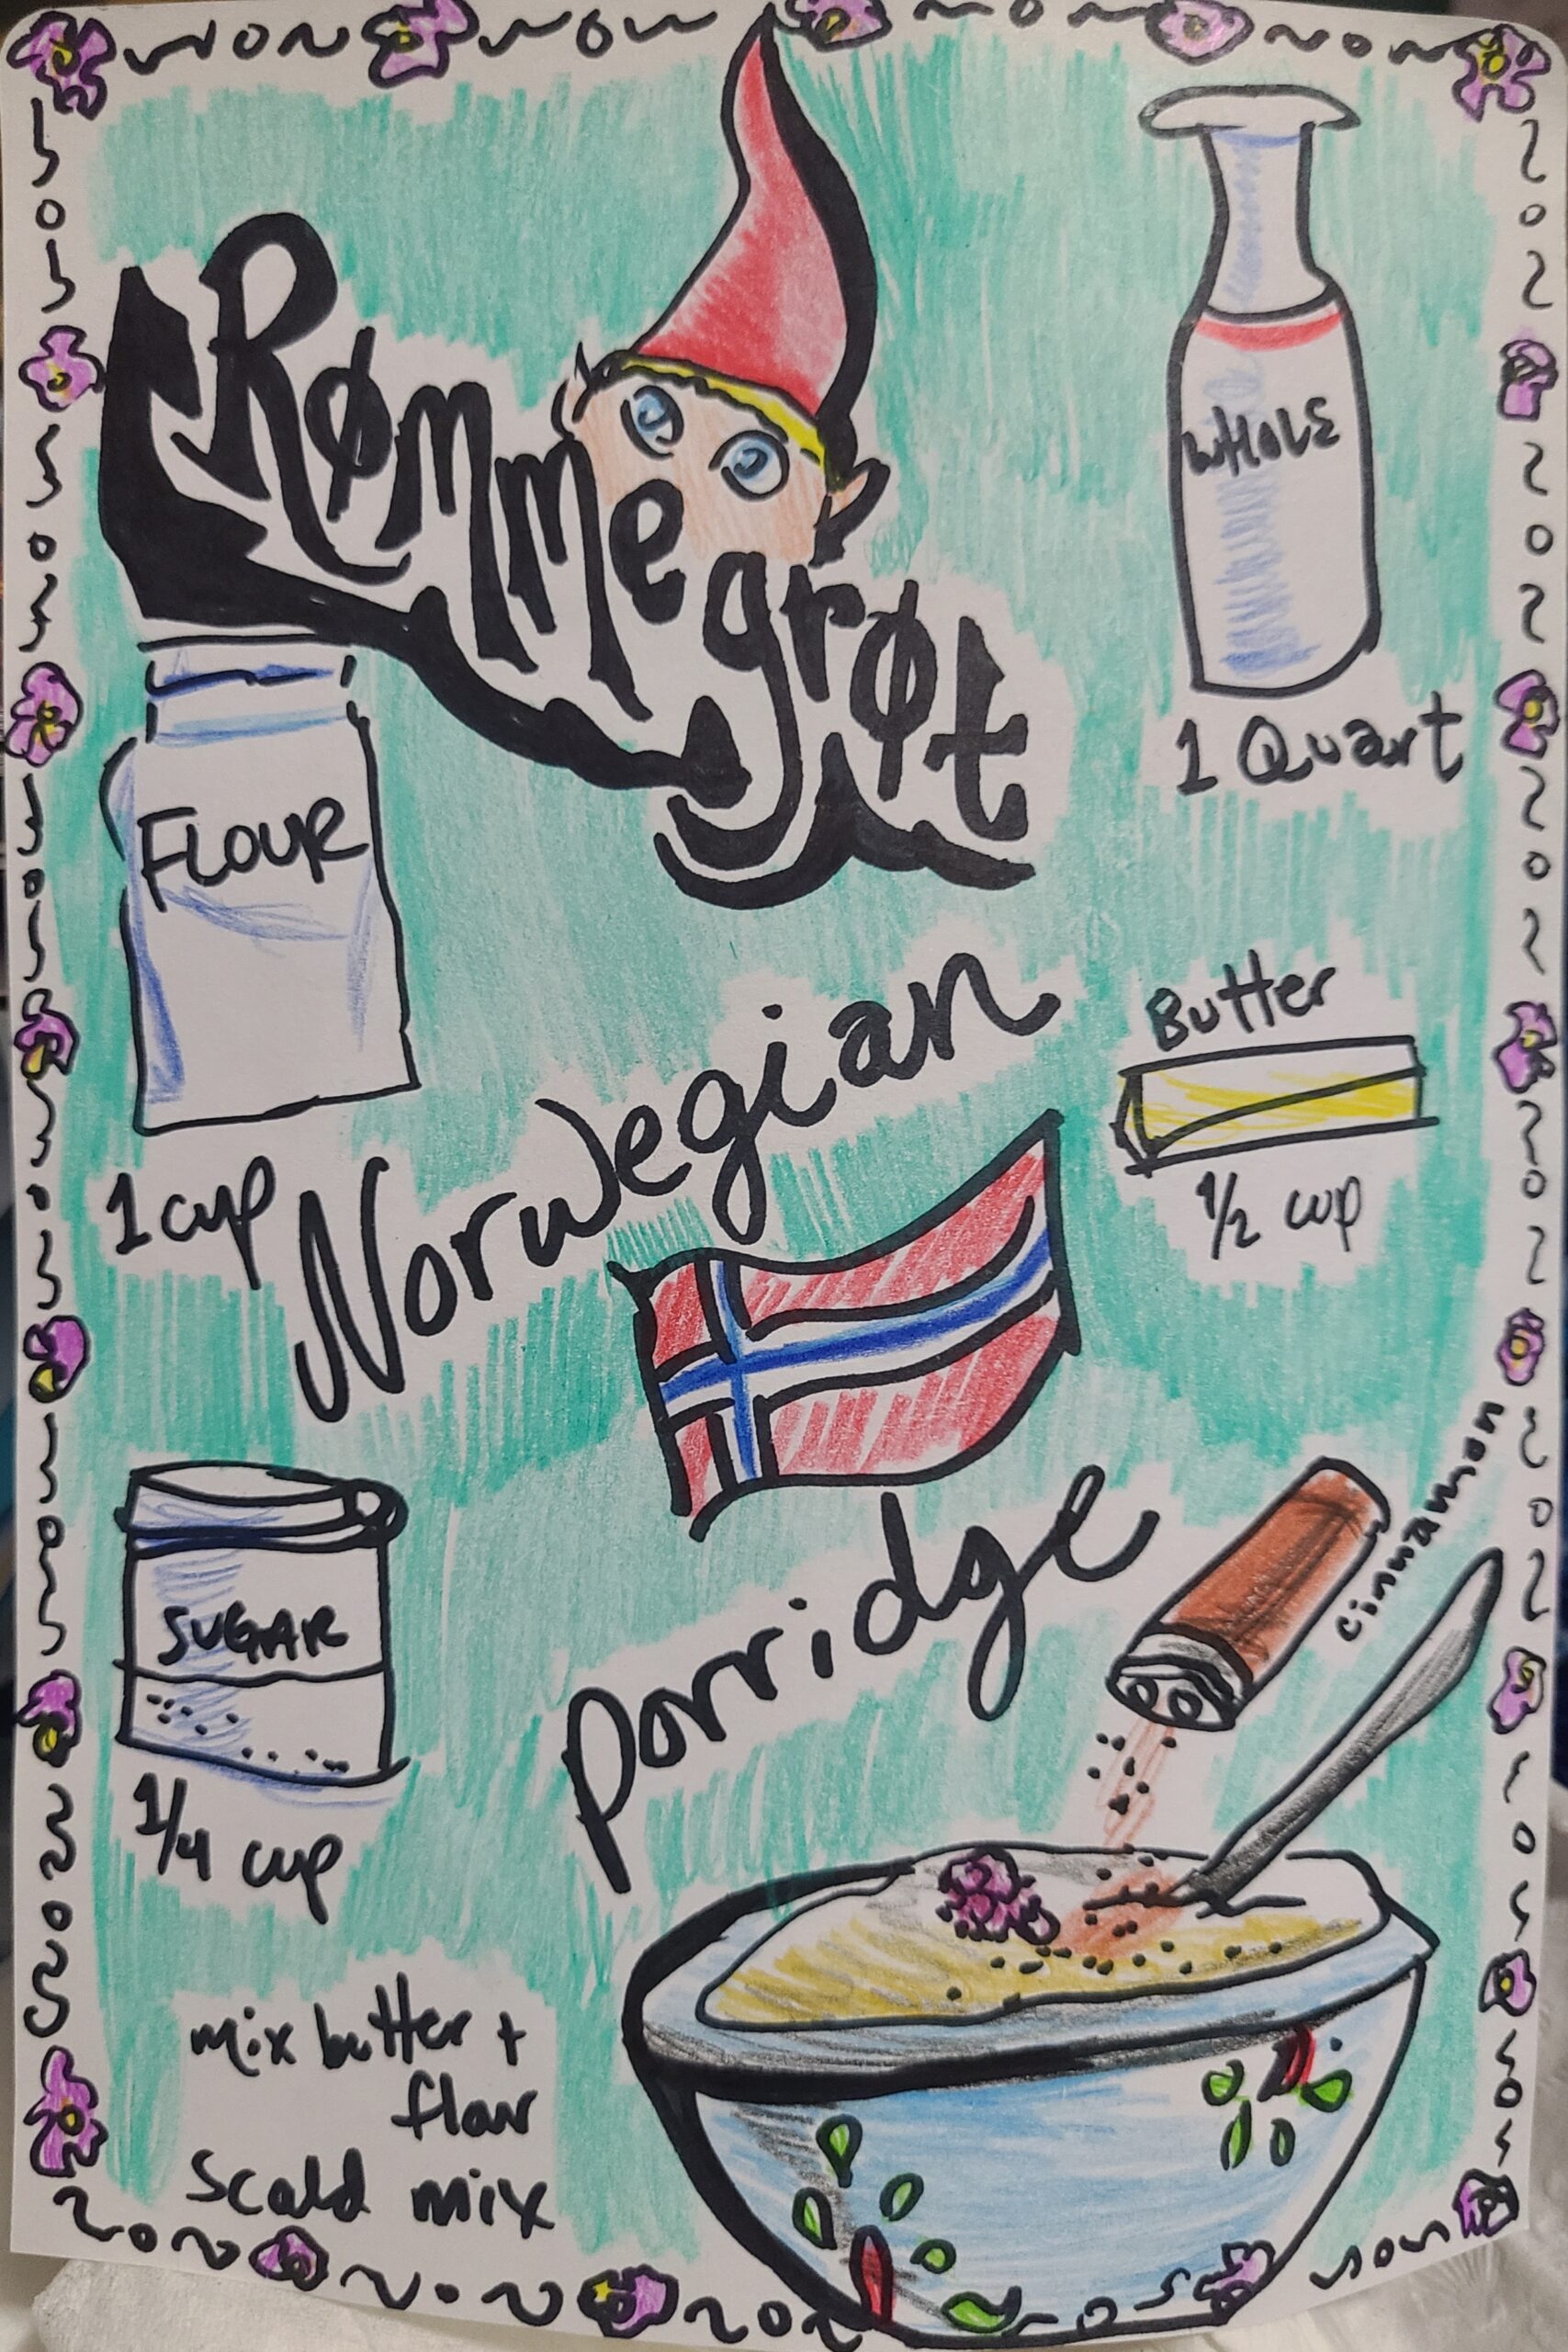 Rømmegrøt
WHOLE
1 Quart
FLOUR
1 cup
Norwegian
Butter
1/2 cup
Porridge
cinnamon
SUGAR
1/4 cup
mix butter +
flour
Scald mix